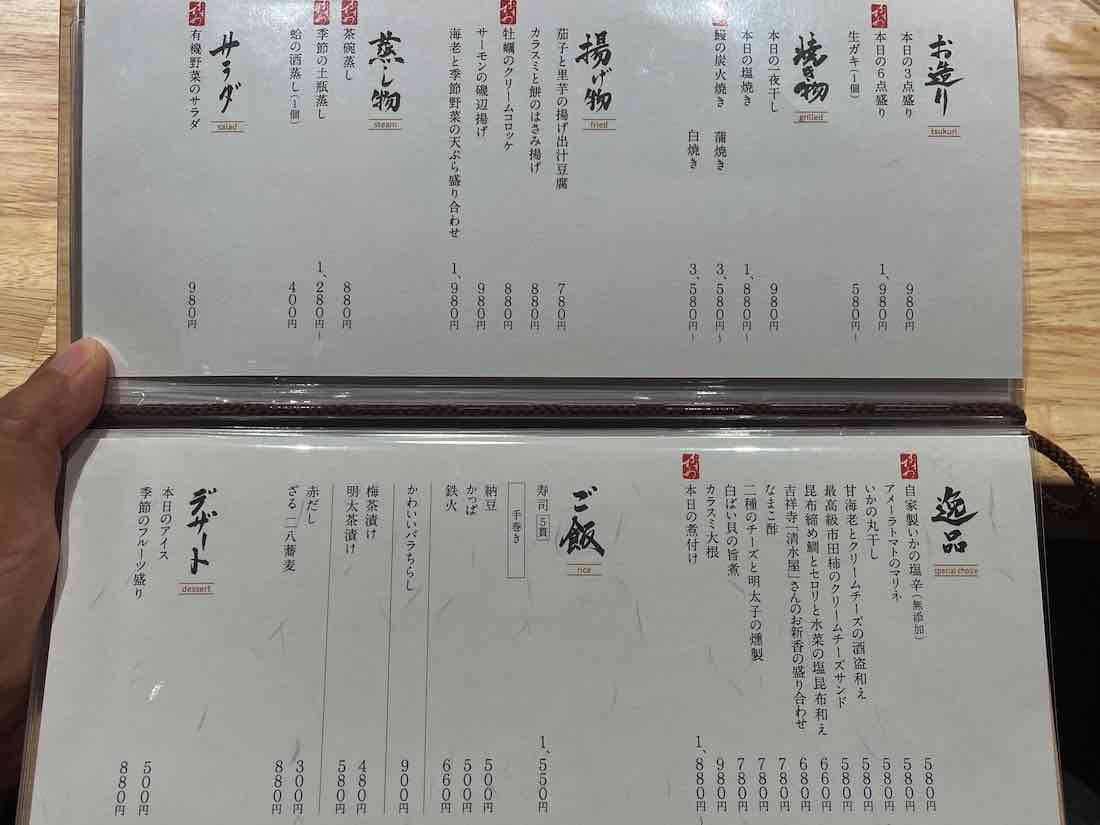 お造り
tsukuri
本日の3点盛り 980円
本日の6点盛り 1、980円
生ガキ(1個) 580円~
焼き物
grilled
本日の一夜干し 980円
本日の塩焼き 1、880円~
鰻の炭火焼き 蒲焼き 3、580円~
白焼き 3、580円~
揚げ物
fried
茄子と里芋の揚げ出汁豆腐 780円
カラスミと餅のはさみ揚げ 880円
牡蠣のクリームコロッケ 880円
サーモンの磯辺揚げ 980円
海老と季節野菜の天ぷら盛り合わせ 1、980円
蒸し物
steam
茶碗蒸し 880円
季節の土瓶蒸し 1、280円~
蛤の酒蒸し(1個) 400円
サラダ
salad
有機野菜のサラダ 980円
逸品
special choice
自家製いかの塩辛(無添加) 580円
アメーラトマトのマリネ 580円
いかの丸干し 580円
甘海老とクリームチーズの酒盗和え 580円
最高級市田柿のクリームチーズサンド 580円
昆布締め鯛とセロリと水菜の塩昆布和え 660円
吉祥寺「清水屋」さんのお新香の盛り合わせ 680円
なまこ酢 780円
二種のチーズと明太子の燻製 780円
白ばい貝の旨煮 780円
カラスミ大根 980円
本日の煮付け 1、880円~
ご飯
rice
寿司 5貫 1、550円
手巻き
納豆 500円
かっぱ 500円
鉄火 660円
かわいいバラちらし 900円
梅茶漬け 480円
明太茶漬け 580円
赤だし 300円
ざる 二八蕎麦 880円
デザート
dessert
本日のアイス 500円
季節のフルーツ盛り 880円